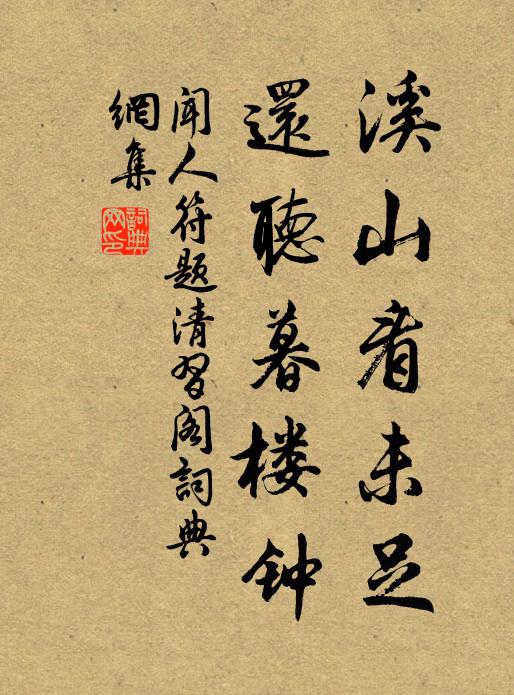 溪山看未足
還聽暮楼钟
聞人符题清習阁詞典
網集
詞典
网印